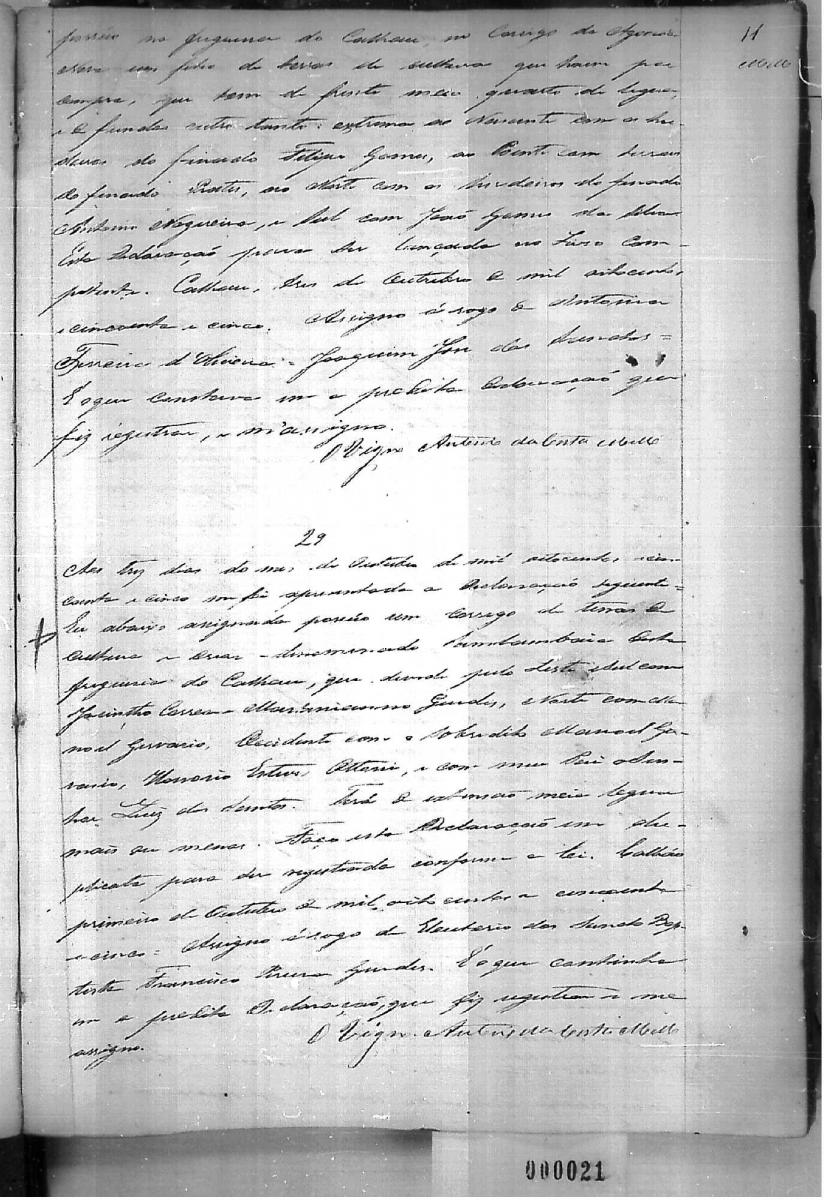 11
Mello
possúo na freguesia do Calhau, no Corrego da
uma de terras de cultura que houve por
compra, que tem de frente meio quarto de legoa,
e de fundos outro tanto: extrema ao Nascente com os her-
deiros do finado Felippe Gomes, ao Poente com terras
do finado Prates, ao Norte com os herdeiros do finado
Antonio Nogueira, e Sul com João Gomes da Silva.
Esta Declaração para ser lançada no Livro Com-
petente. Calhau, tres de Outubro de mil oitocentos
e cincoenta e cinco. Assigno á rogo de Antonia
Ferreira d'Oliveira = Joaquim José dos Santos =
E o que constava em a predita declaração que
fiz registrar, e m'assigno.
O Vigro Antonio da Costa Mello
29
Aos trez dias do mez de Outubro de mil oitocentos e cin-
coenta e cinco me foi apresentada a Declaração seguinte =
Eu abaixo assignado possúo um Corrego de terras de
Cultura e criar denominado Sambambaia desta
freguesia do Calhau, que divide pelo Leste e Sul com
Jacintho Correa e Maximiano Guedes, e Norte com Ma-
noel Gervasio, Occidente com o sobredito Manoel Ger-
vasio, Honorio Esteves Ottoni, e com meu Pai o Sen-
hor Luiz dos Santos. Terá de extensão meia legoa
mais ou menos. Faço esta Declaração em du-
plicata para ser registrada conforme a Lei. Calháo
primeiro de Outubro de mil oito centos e cincoenta
e cinco = Assigno á rogo de Eleuterio dos Santos Bap-
tista Francisco Guedes. E o que continha
em a predita Declaração, que fiz registrar e me
assigno.
O Vigro Antonio da Costa Mello
000021